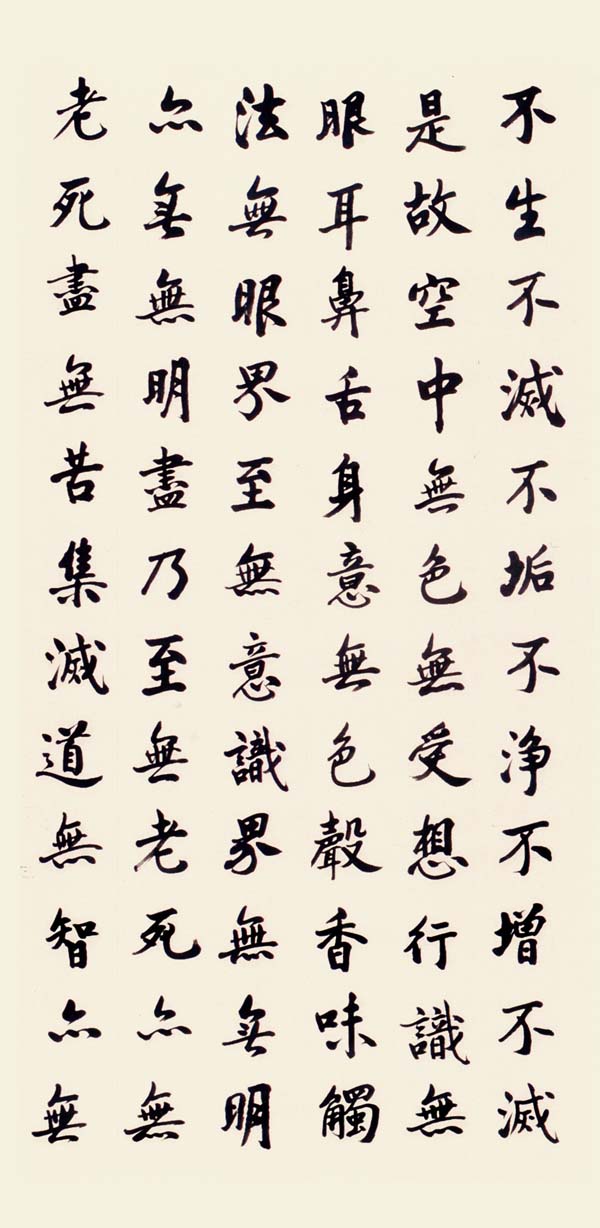 不生不滅不垢不净不增不滅
是故空中無色無受想行識無
眼耳鼻舌身意無色聲香味觸
法無眼界至無意識界無無明
亦無無明盡乃至無老死亦無
老死盡無苦集滅道無智亦無